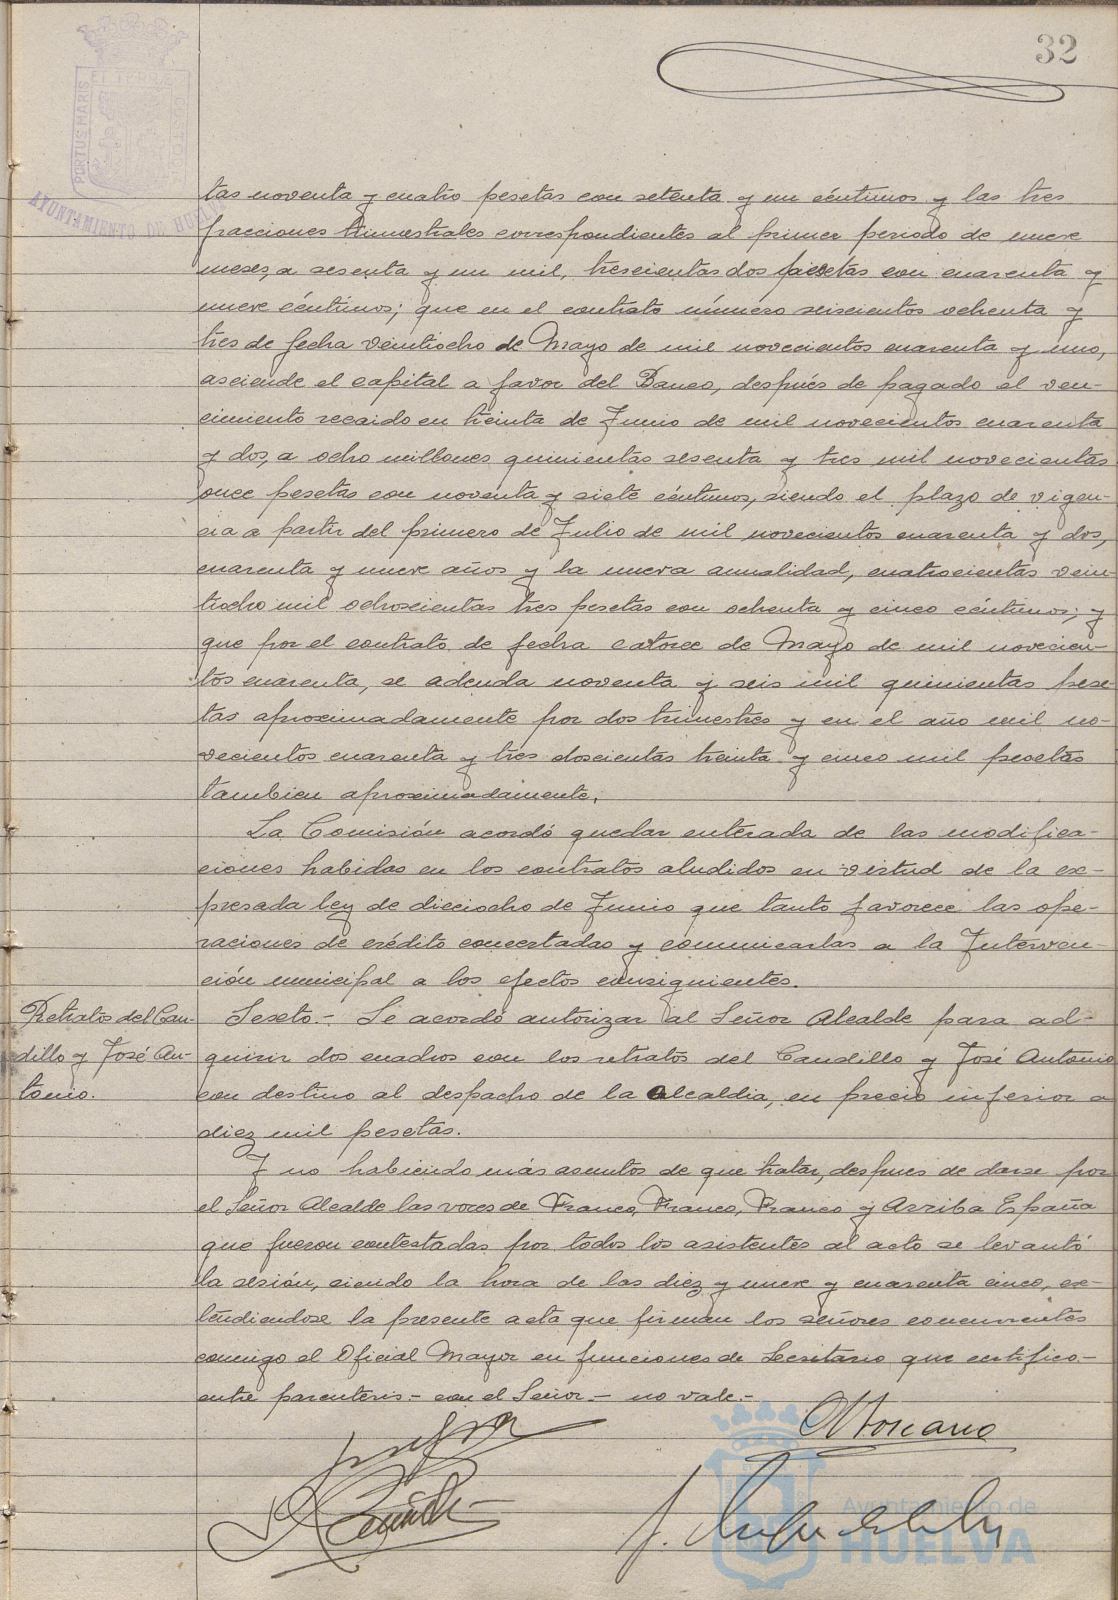 32
PORTUS MARIS ET TERRÆ CUSTODIA
AYUNTAMIENTO DE HUELVA
tas noventa y cuatro pesetas con setenta y un céntimos y las tres
fracciones trimestrales correspondientes al primer periodo de nueve
meses, a sesenta y un mil, trescientas dos pesetas con cuarenta y
nueve céntimos; que en el contrato número seiscientos ochenta y
tres de fecha veintiocho de Mayo de mil novecientos cuarenta y uno,
asciende el capital a favor del Banco, después de pagado el ven-
cimiento recaido en treinta de Junio de mil novecientos cuarenta
y dos, a ocho millones quinientas sesenta y tres mil novecientas
once pesetas con noventa y siete céntimos, siendo el plazo de vigen-
cia a partir del primero de Julio de mil novecientos cuarenta y dos,
cuarenta y nueve años y la nueva anualidad, cuatrocientas vein-
tiocho mil ochoscientas tres pesetas con ochenta y cinco céntimos; y
que por el contrato de fecha catorce de Mayo de mil novecien-
tos cuarenta, se adeuda noventa y seis mil quinientas pese-
tas aproximadamente por dos trimestres y en el año mil no-
vecientos cuarenta y tres doscientas treinta y cinco mil pesetas
tambien aproximadamente.
La Comisión acordó quedar enterada de las modifica-
ciones habidas en los contratos aludidos en virtud de la ex-
presada ley de dieciocho de Junio que tanto favorece las ope-
raciones de crédito concertadas y comunicarlas a la Interven-
ción municipal a los efectos consiguientes.
Retratos del Cau-
dillo y José An-
tonio.
Sexto.- Se acordó autorizar al Señor Alcalde para ad-
quirir dos cuadros con los retratos del Caudillo y José Antonio
con destino al despacho de la Alcaldia, en precio inferior a
diez mil pesetas.
Y no habiendo más asuntos de que tratar, despues de darse por
el Señor Alcalde las voces de Franco, Franco, Franco y Arriba España
que fueron contestadas por todos los asistentes al acto se levantó
la sesión, siendo la hora de las diez y nueve y cuarenta cinco, ex-
tendiendose la presente acta que firman los señores concurrentes
conmigo el Oficial Mayor en funciones de Secretario que certifico.-
entre parentesis.- con el Señor.- no vale.-
Toscano
Ayuntamiento de
HUELVA